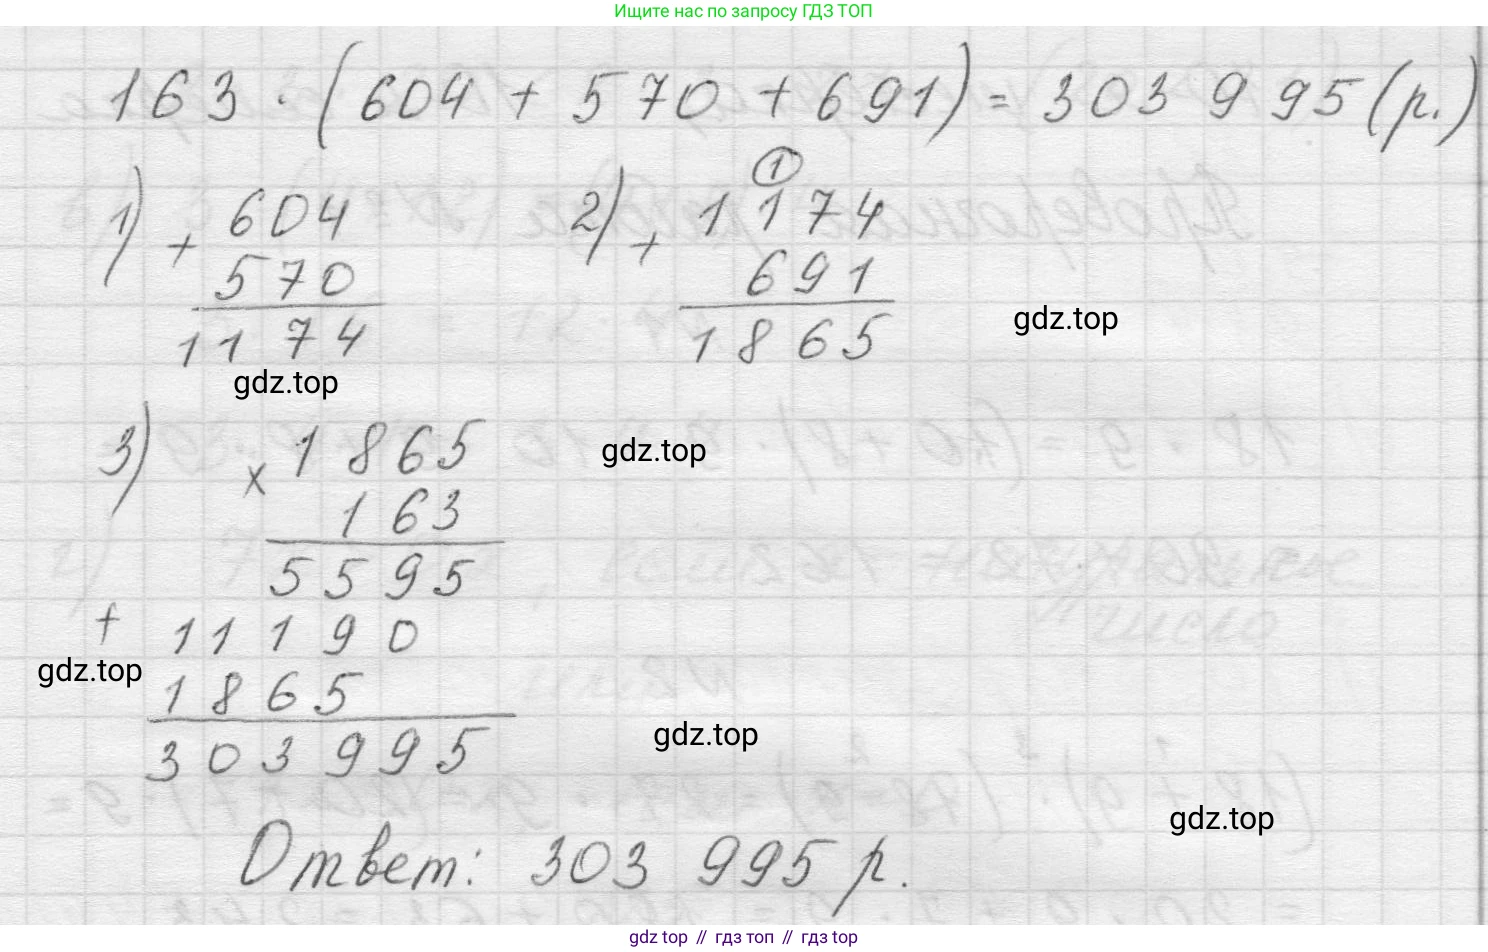 Ищите нас по запросу ГДЗ ТОП
163 · (604 + 570 + 691) = 303 995 (р.)
1) + 604
570
1174
gdz.top
2) + 1174
①
691
1865
gdz.top
3) × 1865
163
5595
+ 11190
1865
303995
gdz.top
gdz.top
gdz.top
gdz.top
Ответ: 303 995 р.
gdz top // гдз топ // гдз top